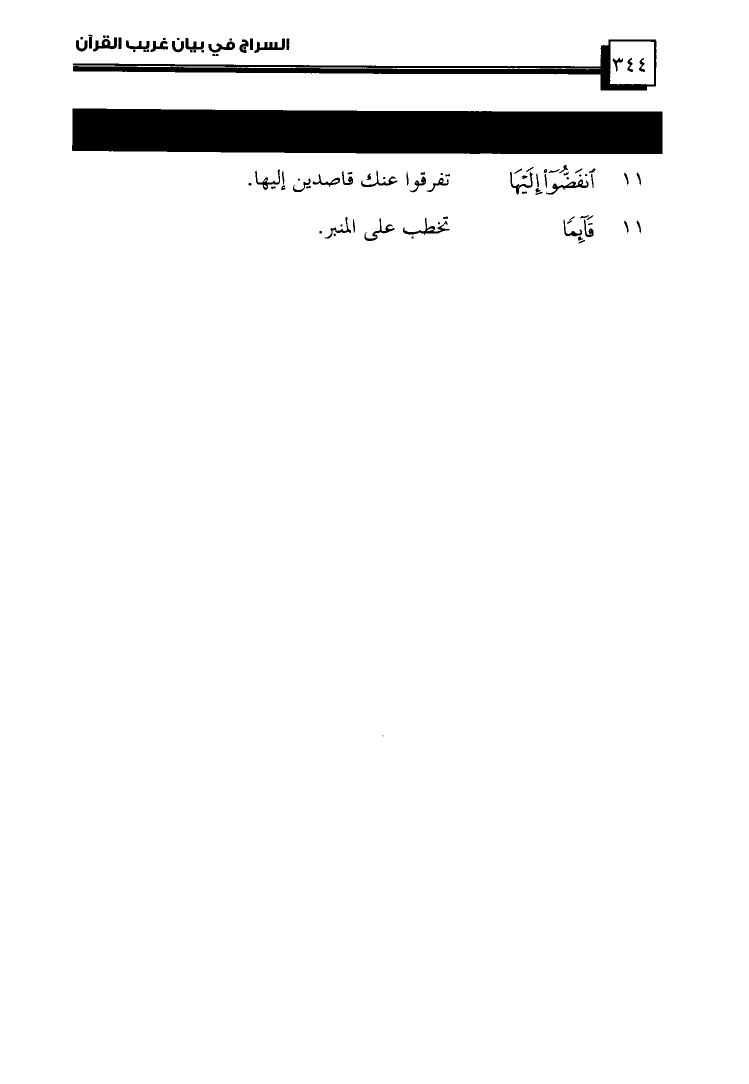 السراج في بيان غريب القرآن
٣٤٤
١١ ٱنفَضُّوٓا۟ إِلَيْهَا تفرقوا عنك قاصدين إليها.
١١ قَآئِمًا تخطب على المنبر.